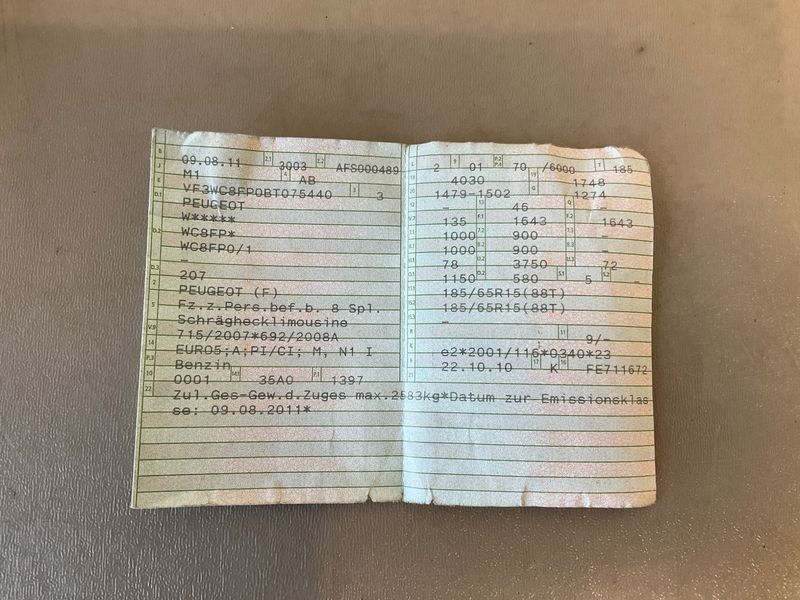 B 09.08.11 2.1 3003 2.2 AFS000489
J M1 4 AB
E VF3WC8FP0BT075440 3 3
D.1 PEUGEOT
W*****
D.2 WC8FP*
WC8FP0/1
–
D.3 207
2 PEUGEOT (F)
5 Fz.z.Pers.bef.b. 8 Spl.
Schräghecklimousine
V.9 715/2007*692/2008A
14 EURO5;A;PI/CI; M, N1 I
P.3 Benzin
10 0001 14.1 35A0 P.1 1397
L 2 9 01 P.2 P.4 70 /6000 T 185
18 4030 19 1748
20 1479-1502 G 1274
12 – 13 46 Q –
135 F.1 1643 F.2 1643
1000 900 –
1000 900 –
U.1 78 U.2 3750 U.3 72
O.1 1150 O.2 580 S.1 5 S.2 –
15.1 185/65R15(88T)
15.2 185/65R15(88T)
15.3 –
R 11 9/–
K e2*2001/116*0340*23
6 22.10.10 17 K 16 FE711672
21
22 Zul.Ges-Gew.d.Zuges max.2583kg*Datum zur Emissionsklas
se: 09.08.2011*